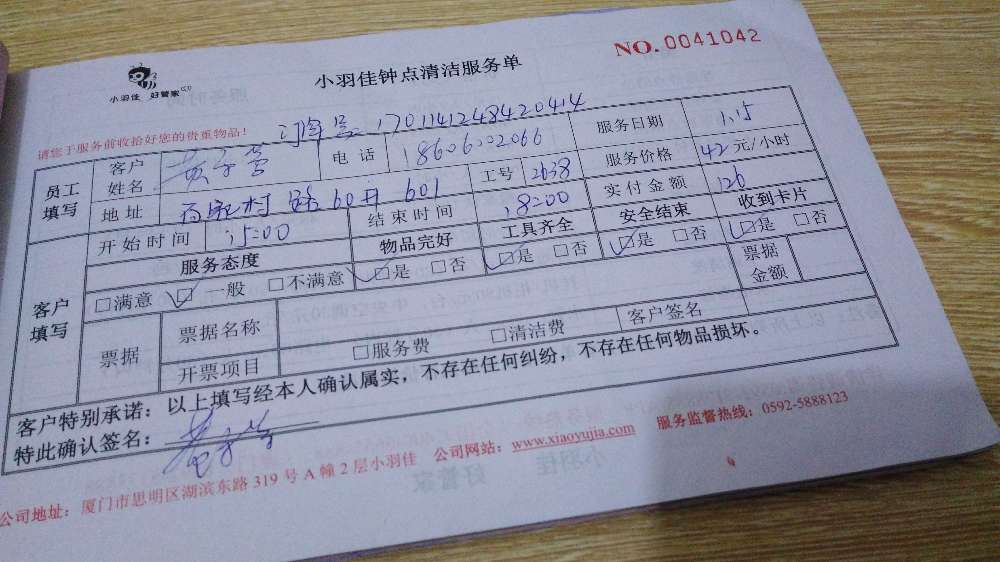 小羽佳 好管家
小羽佳钟点清洁服务单
NO.0041042
请您于服务前收拾好您的贵重物品!
订单号:170114124842041４
员工填写 客户姓名 电话 18606002066 服务日期 1.15
地址 村 60 601 工号 2638 服务价格 42元/小时
开始时间 15:00 结束时间 18:00 实付金额 126
客户填写 服务态度 物品完好 工具齐全 安全结束 收到卡片
□满意 □一般 □不满意 □是 □否 □是 □否 □是 □否 □是 □否
票据 票据名称 票据金额
开票项目 □服务费 □清洁费 客户签名
客户特别承诺:以上填写经本人确认属实,不存在任何纠纷,不存在任何物品损坏。
特此确认签名:
公司地址:厦门市思明区湖滨东路319号A幢2层小羽佳 公司网站:www.xiaoyujia.com 服务监督热线:0592-5888123